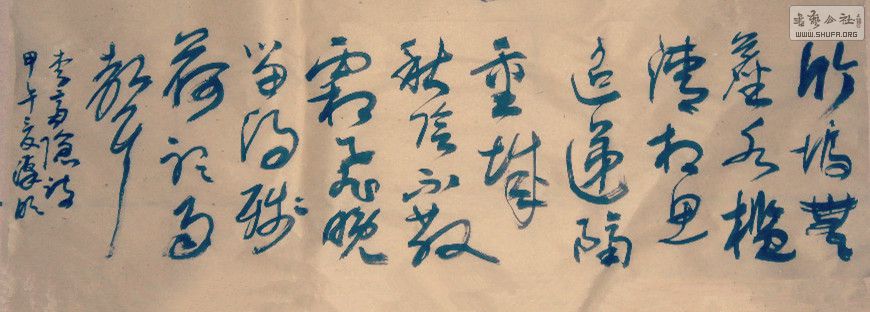 竹塢無
塵水檻
清相思
迢遞隔
重城
秋陰不散
霜飛晚
留得殘
荷聽雨
聲
李商隱詩
甲午夏
書藝公社
WWW.SHUFA.ORG